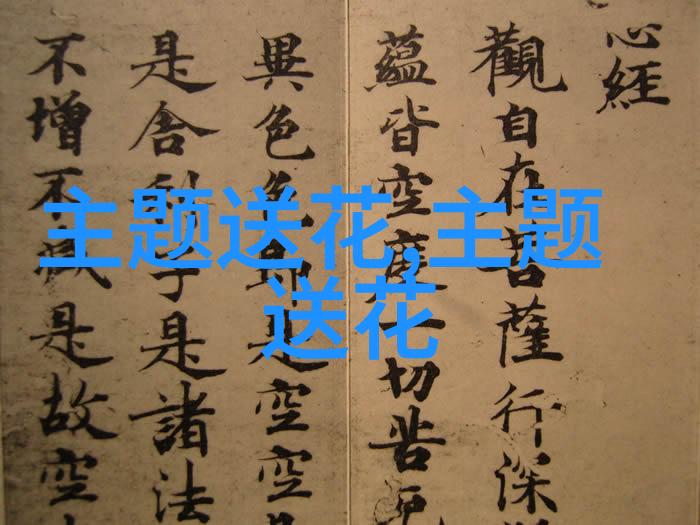 主题送花,主题
送花
心經
觀自在菩薩行深
蘊皆空度一切苦厄
異色色即是空空是
是舍利子是諸法
不增不減是故空